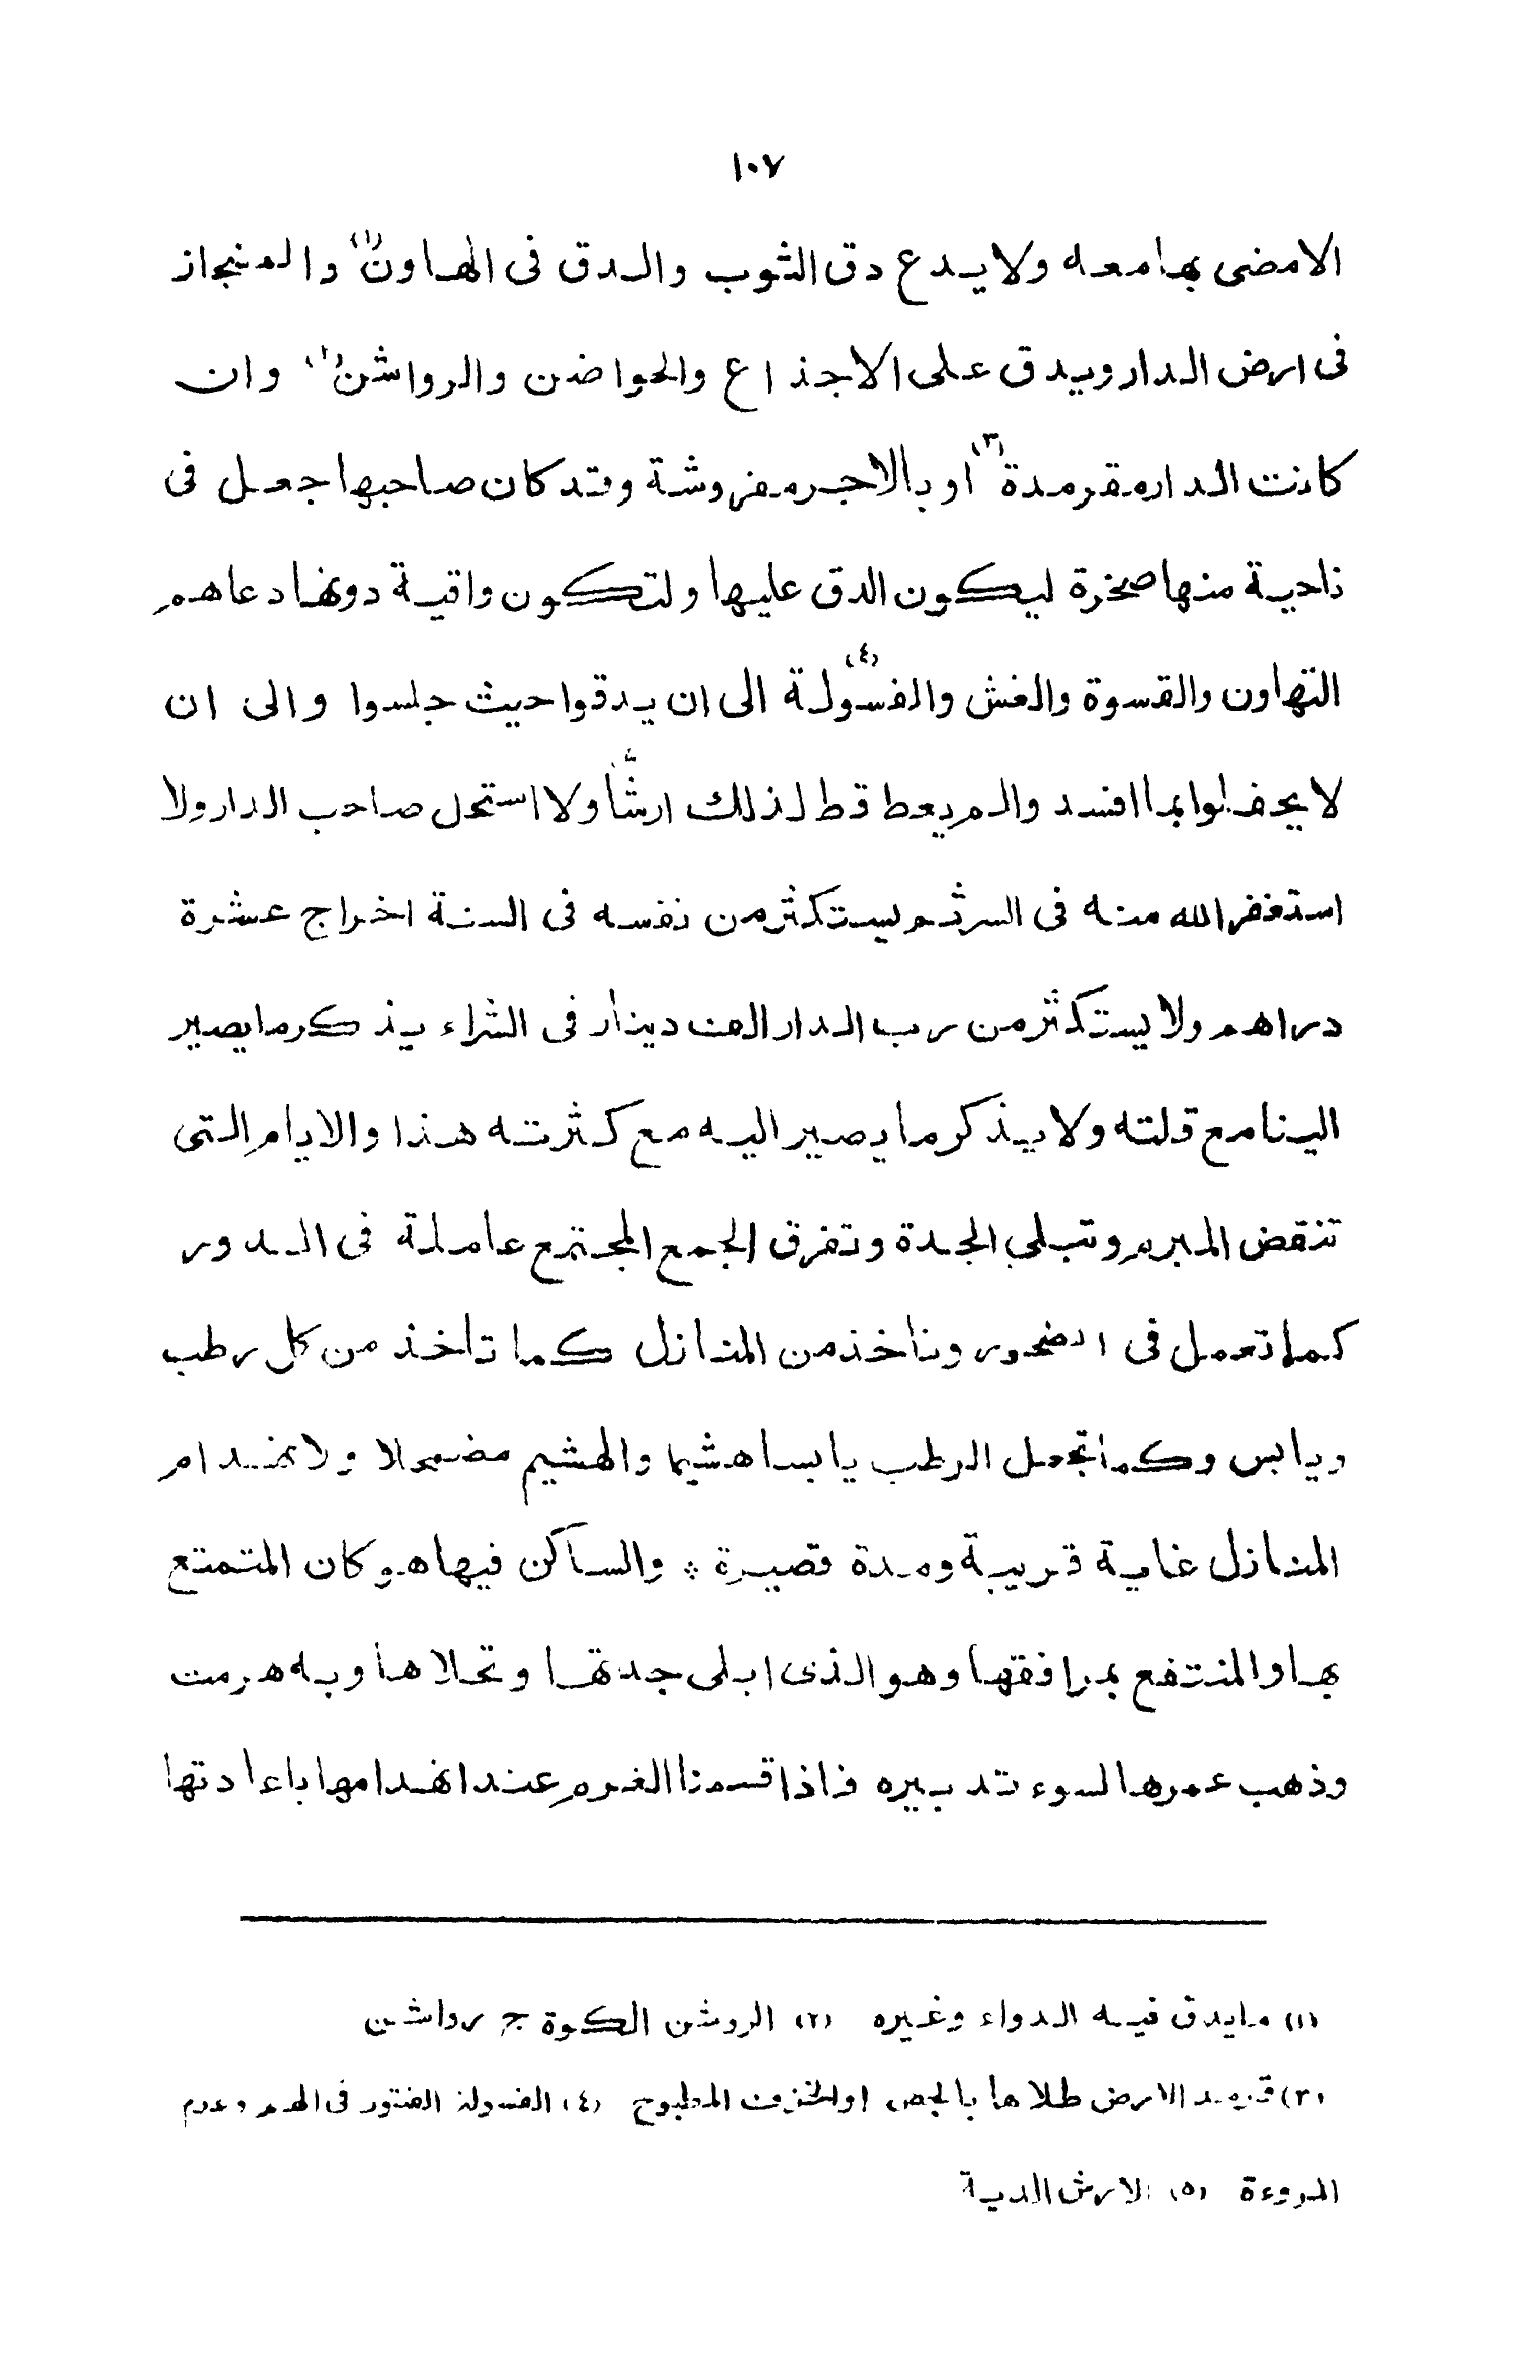 ١٠٧
الامضى بها معه ولا يدع دق الثوب والدق فى الهاون(١) والمنجاز
فى ارض الدار ويدق على الاجذاع والحواضن والرواشن(٢) وان
كانت الدار مقرمدة(٣) او بالاجر مفروشة وقد كان صاحبها جعل فى
ناحية منها صخرة ليكون الدق عليها ولتكون واقية دونها دعاهم
التهاون والقسوة والغش والفسولة(٤) الى ان يدقوا حيث جلسوا والى ان
لا يحفلوا بما افسد والم يعط قط لذلك ارشًا ولا استحل صاحب الدار ولا
استغفر الله منه فى السر ثم يستكثر من نفسه فى السنة اخراج عشرة
دراهم ولا يستكثر من رب الدار الف دينار فى الشراء يذكر ما يصير
الينا مع قلته ولا يذكر ما يصير اليه مع كثرته هذا والايام التى
تنقض المبرم وتبلى الجدة وتفرق الجمع المجتمع عاملة فى الدور
كما تعمل فى الصخور وتأخذ من المنازل كما تأخذ من كل رطب
ويابس وكما تجعل الرطب يابسا هشيما والهشيم مضمحلا ولانهدام
المنازل غاية قريبة ومدة قصيرة * والساكن فيها هو كان المتمتع
بها والمنتفع بمرافقها وهو الذى ابلى جدتها وتحلاها وبه هرمت
وذهب عمرها لسوء تدبيره فاذا قسمنا الغرم عند انهدامها باعادتها
(١) ما يدق فيه الدواء وغيره (٢) الروشن الكوة ج رواشن
(٣) قرمد الارض طلاها بالجص او الخزف المطبوخ (٤) الفسولة الفتور فى الهمم وعدم
المروءة (٥) الارش الدية